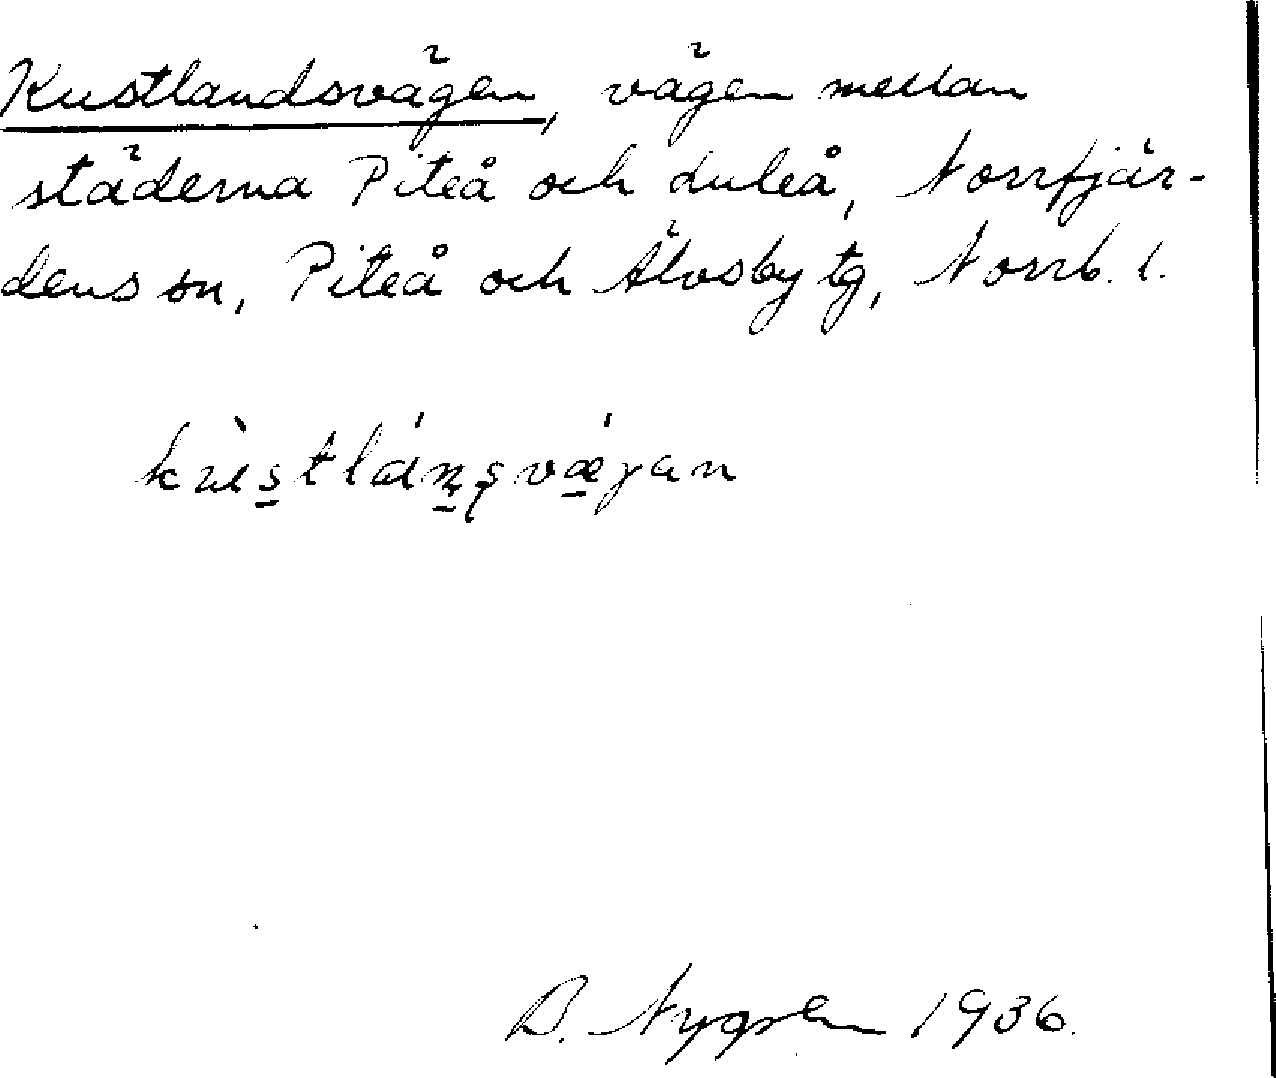 Kustlandsvägen, vägen mellan
städerna Piteå och Luleå, Norrfjär-
dens sn, Piteå och Älvsby tg, Norrb. l.
B. Nygren 1936.